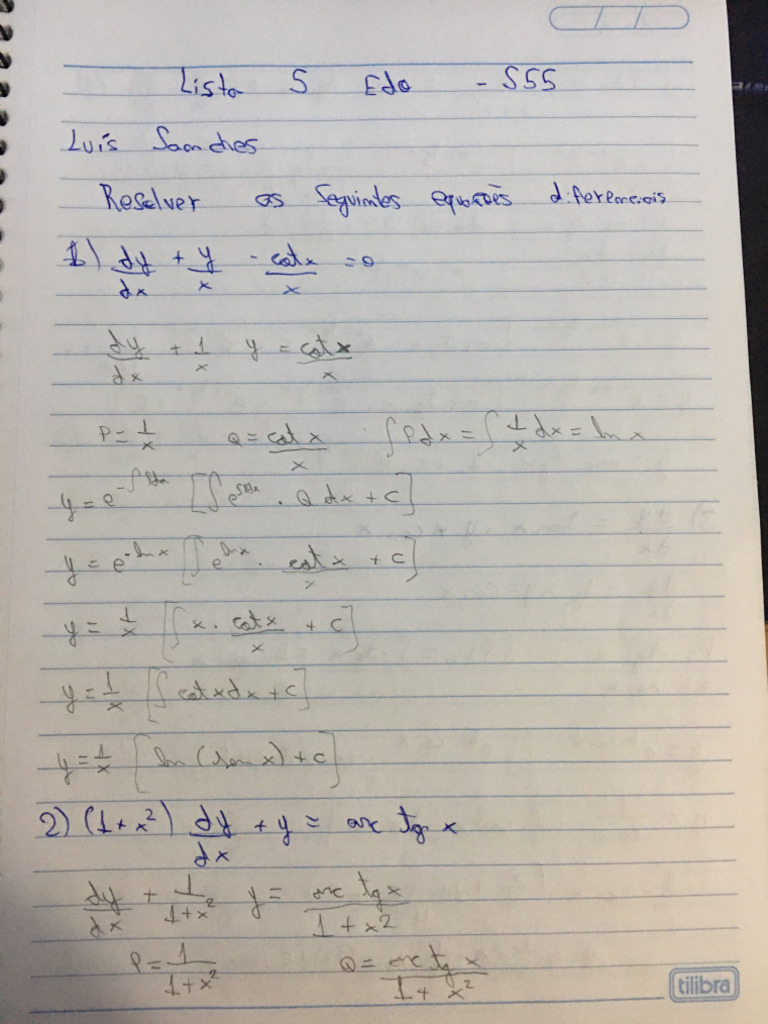 Lista 5 Edo - S55
Luís Sanches
Resolver as Seguintes equações diferenciais
1) dy/dx + y/x - cotx/x = 0
dy/dx + 1/x y = cotx/x
P = 1/x Q = cot x/x ∫Pdx = ∫ 1/x dx = ln x
y = e^{-∫Pdx} [∫ e^{∫Pdx} . Q dx + C]
y = e^{-ln x} [∫ e^{ln x} . cotx/x + C]
y = 1/x [∫ x . cotx/x + C]
y = 1/x [∫ cotxdx + C]
y = 1/x [ln (sen x) + C]
2) (1 + x²) dy/dx + y = arc tg x
dy/dx + 1/1+x² y = arc tg x/1 + x²
P = 1/1+x² Q = arc tg x/1 + x²
tilibra